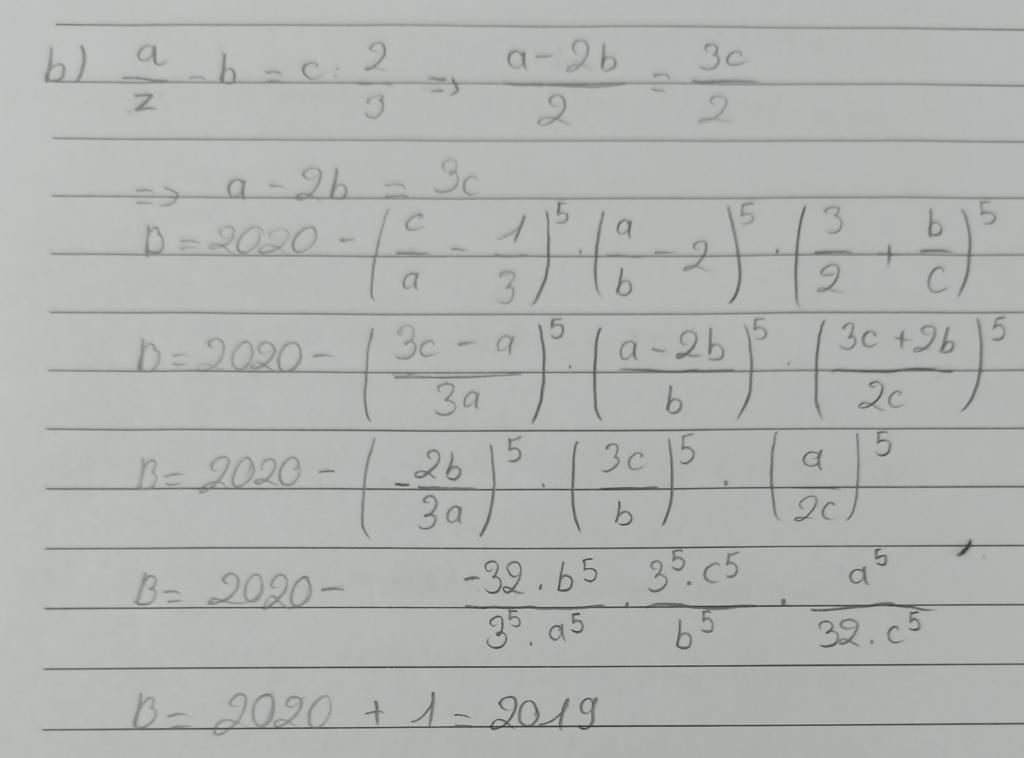 b) a/2 - b = c : 2/3 => (a - 2b)/2 = 3c/2
=> a - 2b = 3c
B = 2020 - (c/a - 1/3)^5 . (a/b - 2)^5 . (3/2 + b/c)^5
B = 2020 - ((3c - a)/3a)^5 . ((a - 2b)/b)^5 . ((3c + 2b)/2c)^5
B = 2020 - (-2b/3a)^5 . (3c/b)^5 . (a/2c)^5
B = 2020 - (-32 . b^5)/(3^5 . a^5) . (3^5 . c^5)/b^5 . a^5/(32 . c^5)
B = 2020 + 1 = 2019